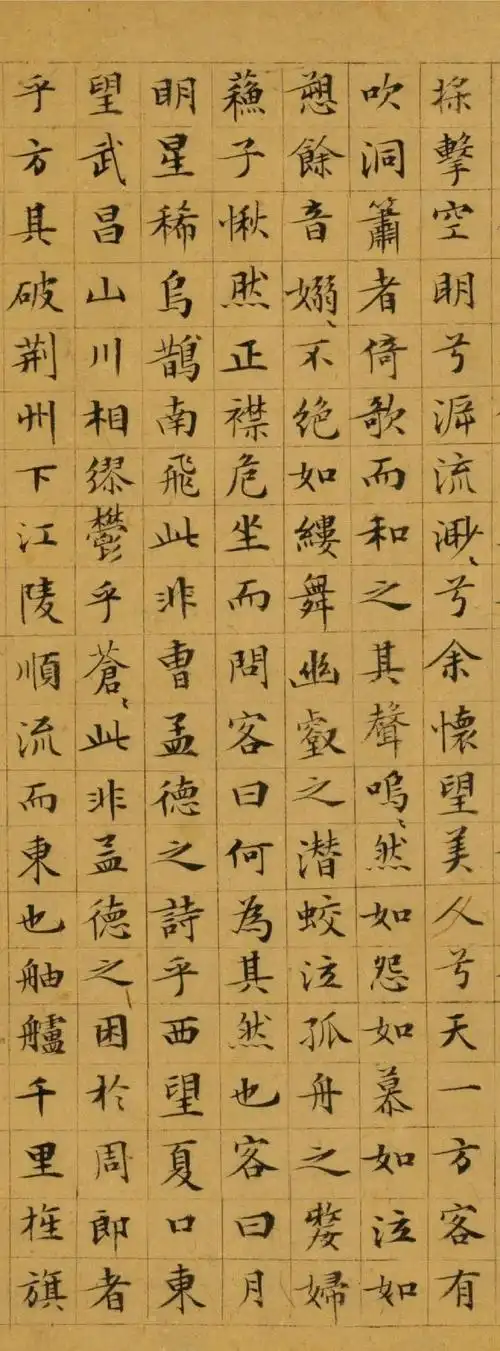 擊空明兮泝流渺〻兮余懷望美人兮天一方客有
吹洞簫者倚歌而和之其聲嗚〻然如怨如慕如泣如
愬餘音嫋〻不絕如縷舞幽壑之潛蛟泣孤舟之嫠婦
蘓子愀然正襟危坐而問客曰何為其然也客曰月
明星稀烏鵲南飛此非曹孟德之詩乎西望夏口東
望武昌山川相繆鬱乎蒼〻此非孟德之困於周郎者
乎方其破荊州下江陵順流而東也舳艫千里旌旗